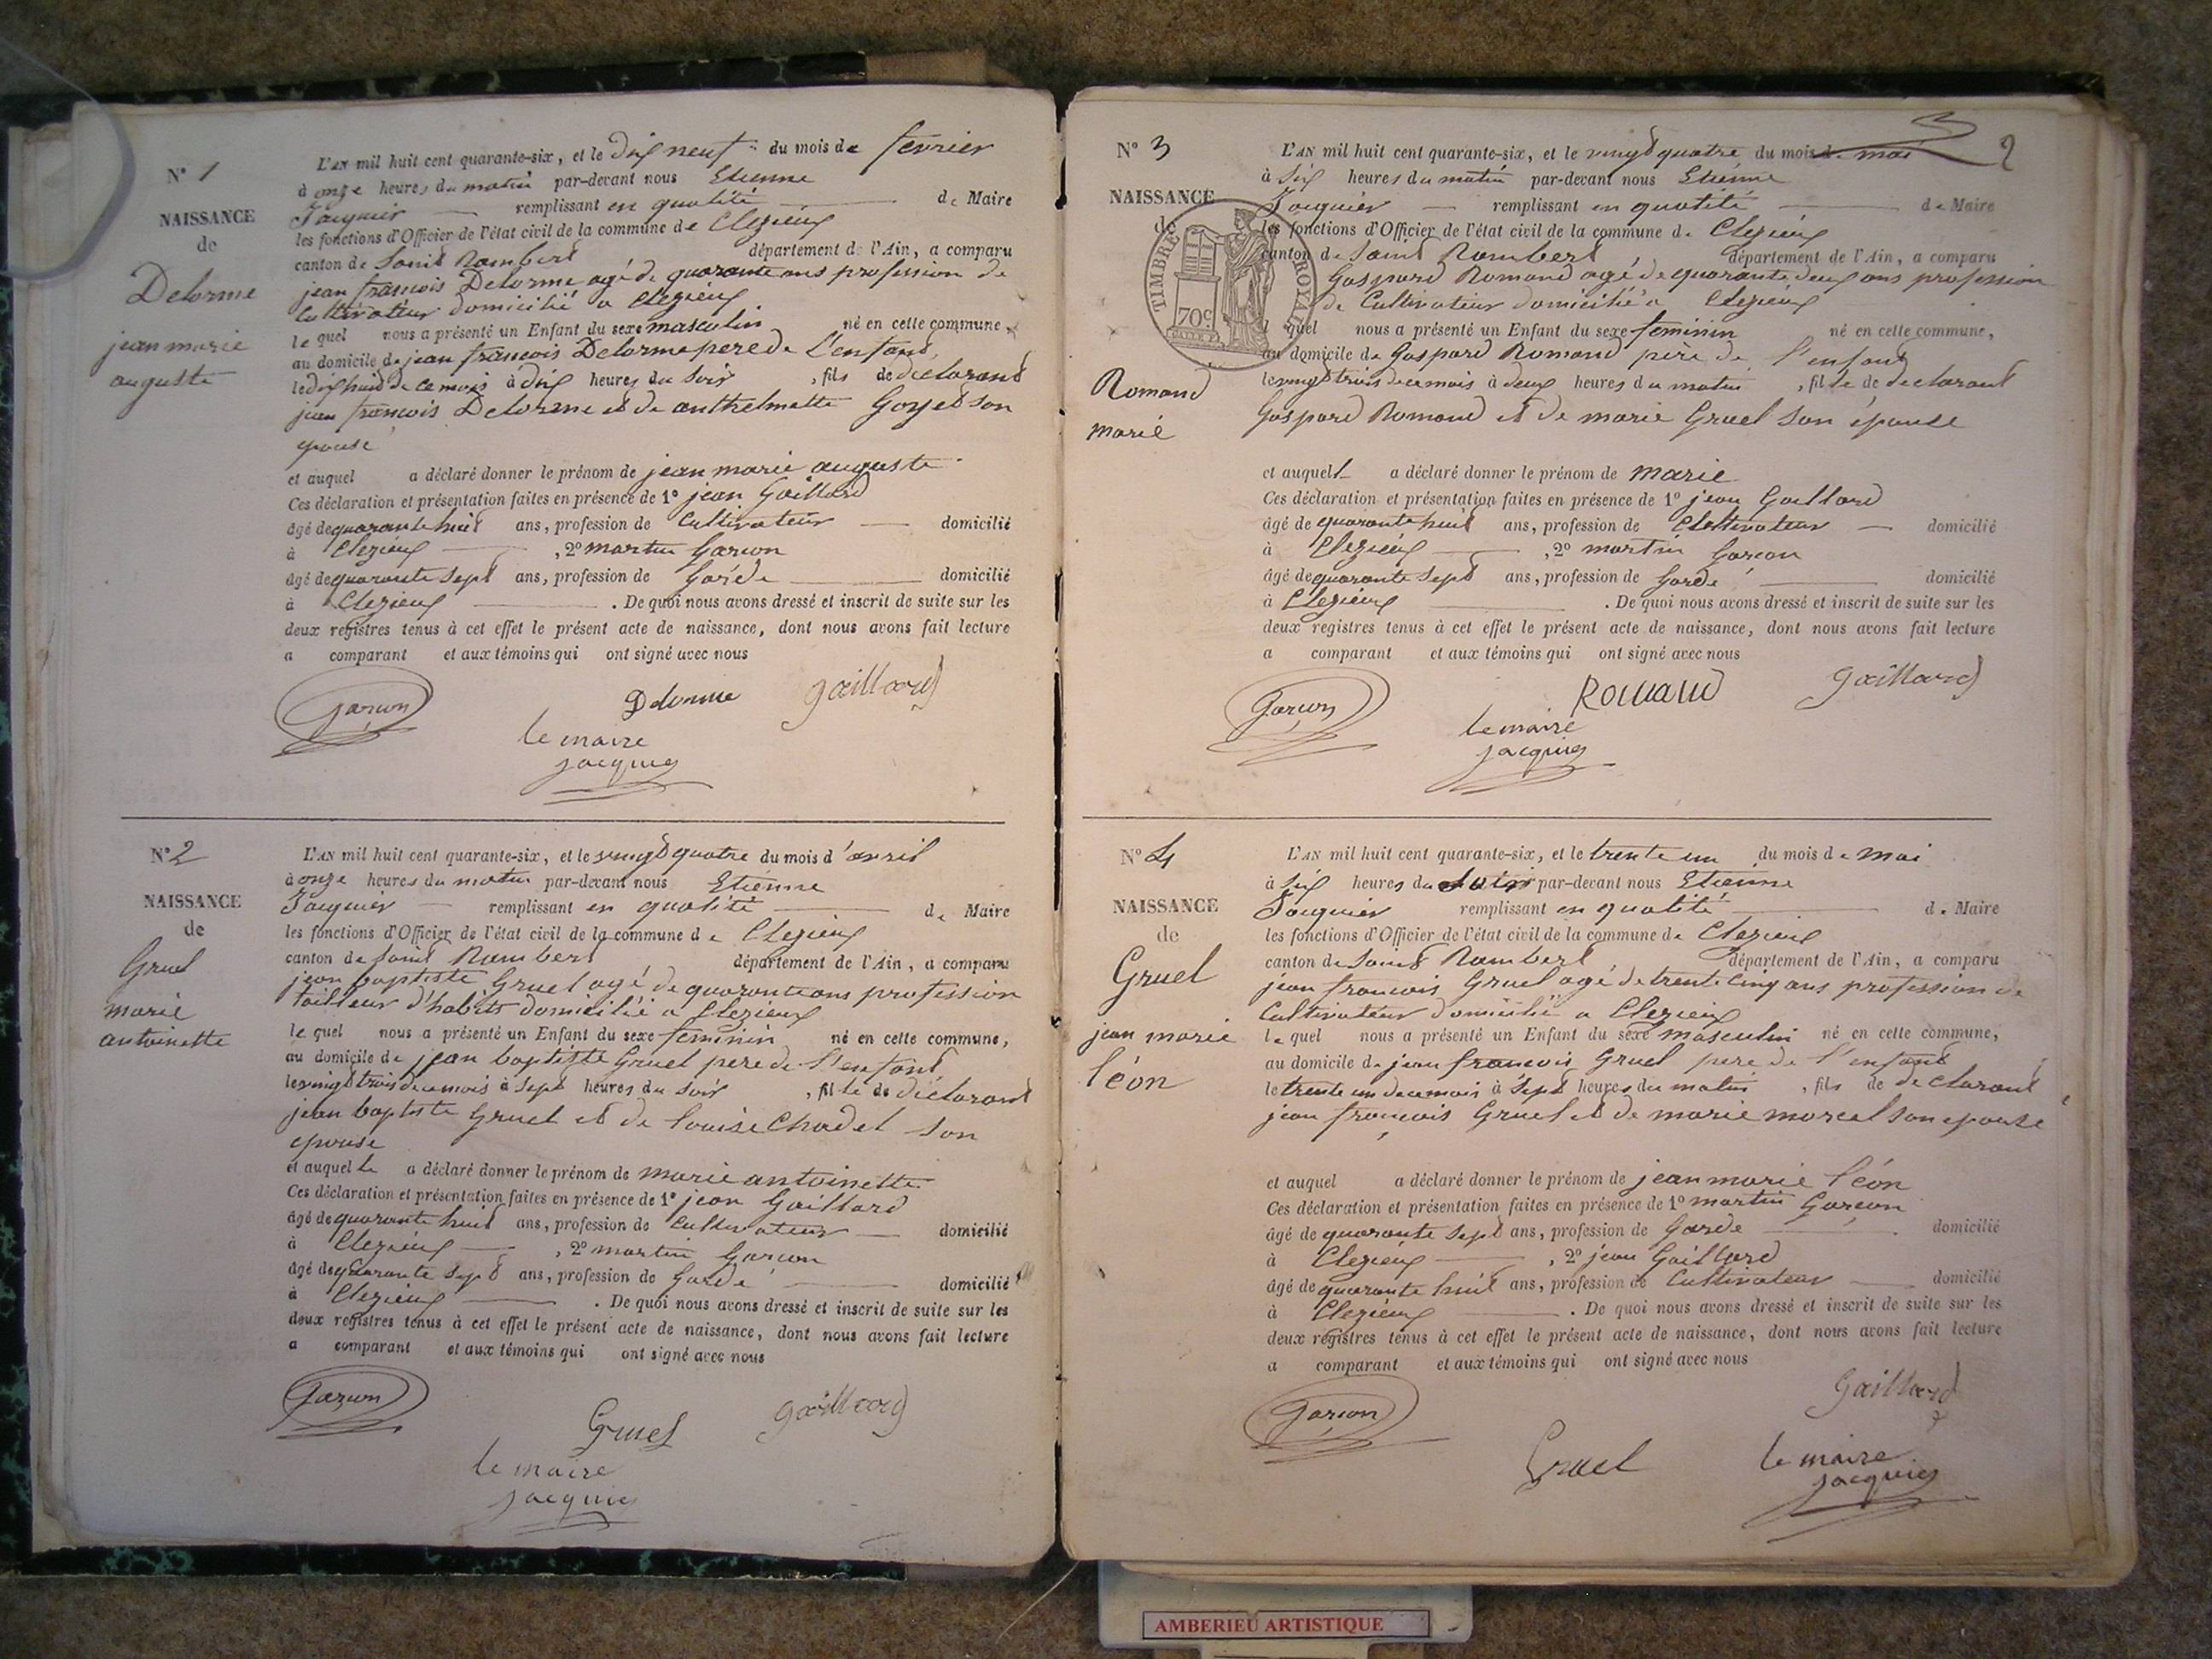 N° 1
NAISSANCE
de
Delorme
jean marie
auguste
L'AN mil huit cent quarante-six, et le dix neuf du mois de fevrier
à onze heures du matin par-devant nous Etienne
Jacquier remplissant en qualité de Maire
les fonctions d'Officier de l'état civil de la commune de Clezieux
canton de Saint Rambert département de l'Ain, a comparu
jean francois Delorme agé de quarante ans profession de
Cultivateur domicilié a Clezieux
le quel nous a présenté un Enfant du sexe masculin né en cette commune,
au domicile de jean francois Delorme pere de l'enfant,
le dix huit de ce mois à dix heures du soir, fils de declarant
jean francois Delorme et de anthelmette Goyet son
epouse
et auquel a déclaré donner le prénom de jean marie auguste
Ces déclaration et présentation faites en présence de 1° jean Gaillard
âgé de quarante huit ans, profession de Cultivateur domicilié
à Clezieux, 2° martin Garcon
âgé de quarante sept ans, profession de Garde domicilié
à Clezieux. De quoi nous avons dressé et inscrit de suite sur les
deux registres tenus à cet effet le présent acte de naissance, dont nous avons fait lecture
a comparant et aux témoins qui ont signé avec nous
Garcon Delorme gaillard
le maire
jacquier
N° 2
NAISSANCE
de
Gruel
marie
antoinette
L'AN mil huit cent quarante-six, et le vingt quatre du mois d'avril
à onze heures du matin par-devant nous Etienne
Jacquier remplissant en qualité de Maire
les fonctions d'Officier de l'état civil de la commune de Clezieux
canton de Saint Rambert département de l'Ain, a comparu
jean baptiste Gruel agé de quarante ans profession
Tailleur d'habits domicilié a Clezieux
le quel nous a présenté un Enfant du sexe feminin né en cette commune,
au domicile de jean baptiste Gruel pere de l'enfant
le vingt trois de ce mois à sept heures du soir, fille de déclarant
jean baptiste Gruel et de louise Chadel son
epouse
et auquel le a déclaré donner le prénom de marie antoinette
Ces déclaration et présentation faites en présence de 1° jean Gaillard
âgé de quarante huit ans, profession de Cultivateur domicilié
à Clezieux, 2° martin Garcon
âgé de quarante sept ans, profession de Garde domicilié
à Clezieux. De quoi nous avons dressé et inscrit de suite sur les
deux registres tenus à cet effet le présent acte de naissance, dont nous avons fait lecture
a comparant et aux témoins qui ont signé avec nous
Garcon Gruel gaillard
le maire
jacquier
3 2
N° 3
NAISSANCE
de
TIMBRE ROYAL
70c
Romand
marie
L'AN mil huit cent quarante-six, et le vingt quatre du mois de mai
à six heures du matin par-devant nous Etienne
Jacquier remplissant en qualité de Maire
les fonctions d'Officier de l'état civil de la commune de Clezieux
canton de Saint Rambert département de l'Ain, a comparu
Gaspard Romand agé de quarante deux ans profession
de Cultivateur domicilié a Clezieux
l quel nous a présenté un Enfant du sexe feminin né en cette commune,
au domicile de Gaspard Romand père de l'enfant
le vingt trois de ce mois à deux heures du matin, fille de declarant
Gaspard Romand et de marie Gruel son épouse
et auquel l a déclaré donner le prénom de marie
Ces déclaration et présentation faites en présence de 1° jean Gaillard
âgé de quarante huit ans, profession de Cultivateur domicilié
à Clezieux, 2° martin Garcon
âgé de quarante sept ans, profession de Garde domicilié
à Clezieux. De quoi nous avons dressé et inscrit de suite sur les
deux registres tenus à cet effet le présent acte de naissance, dont nous avons fait lecture
a comparant et aux témoins qui ont signé avec nous
Garcon Romand gaillard
le maire
jacquier
N° 4
NAISSANCE
de
Gruel
jean marie
léon
L'AN mil huit cent quarante-six, et le trente un du mois de mai
à six heures du soir par-devant nous Etienne
Jacquier remplissant en qualité de Maire
les fonctions d'Officier de l'état civil de la commune de Clezieux
canton de Saint Rambert département de l'Ain, a comparu
jean francois Gruel agé de trente cinq ans profession de
Cultivateur domicilié a Clezieux
le quel nous a présenté un Enfant du sexe masculin né en cette commune,
au domicile de jean francois Gruel pere de l'enfant
le trente un de ce mois à sept heures du matin, fils de declarant
jean francois Gruel et de marie morcel son epouse
et auquel a déclaré donner le prénom de jean marie léon
Ces déclaration et présentation faites en présence de 1° martin Garcon
âgé de quarante sept ans, profession de Garde domicilié
à Clezieux, 2° jean Gaillard
âgé de quarante huit ans, profession de Cultivateur domicilié
à Clezieux. De quoi nous avons dressé et inscrit de suite sur les
deux registres tenus à cet effet le présent acte de naissance, dont nous avons fait lecture
a comparant et aux témoins qui ont signé avec nous
Garcon Gruel Gaillard
le maire
jacquier
AMBERIEU ARTISTIQUE